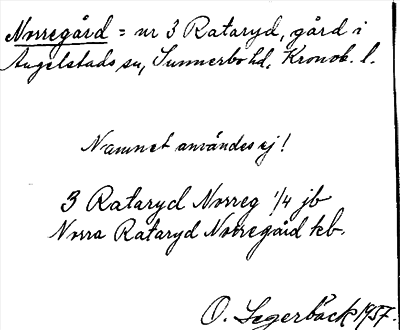 Norregård = nr 3 Rataryd, gård i
Angelstads sn, Sunnerbo hd, Kronob. l.
Namnet användes ej!
3 Rataryd Norreg 1/4 jb
Norra Rataryd Norregård kb.
O. Segerbäck 1957.